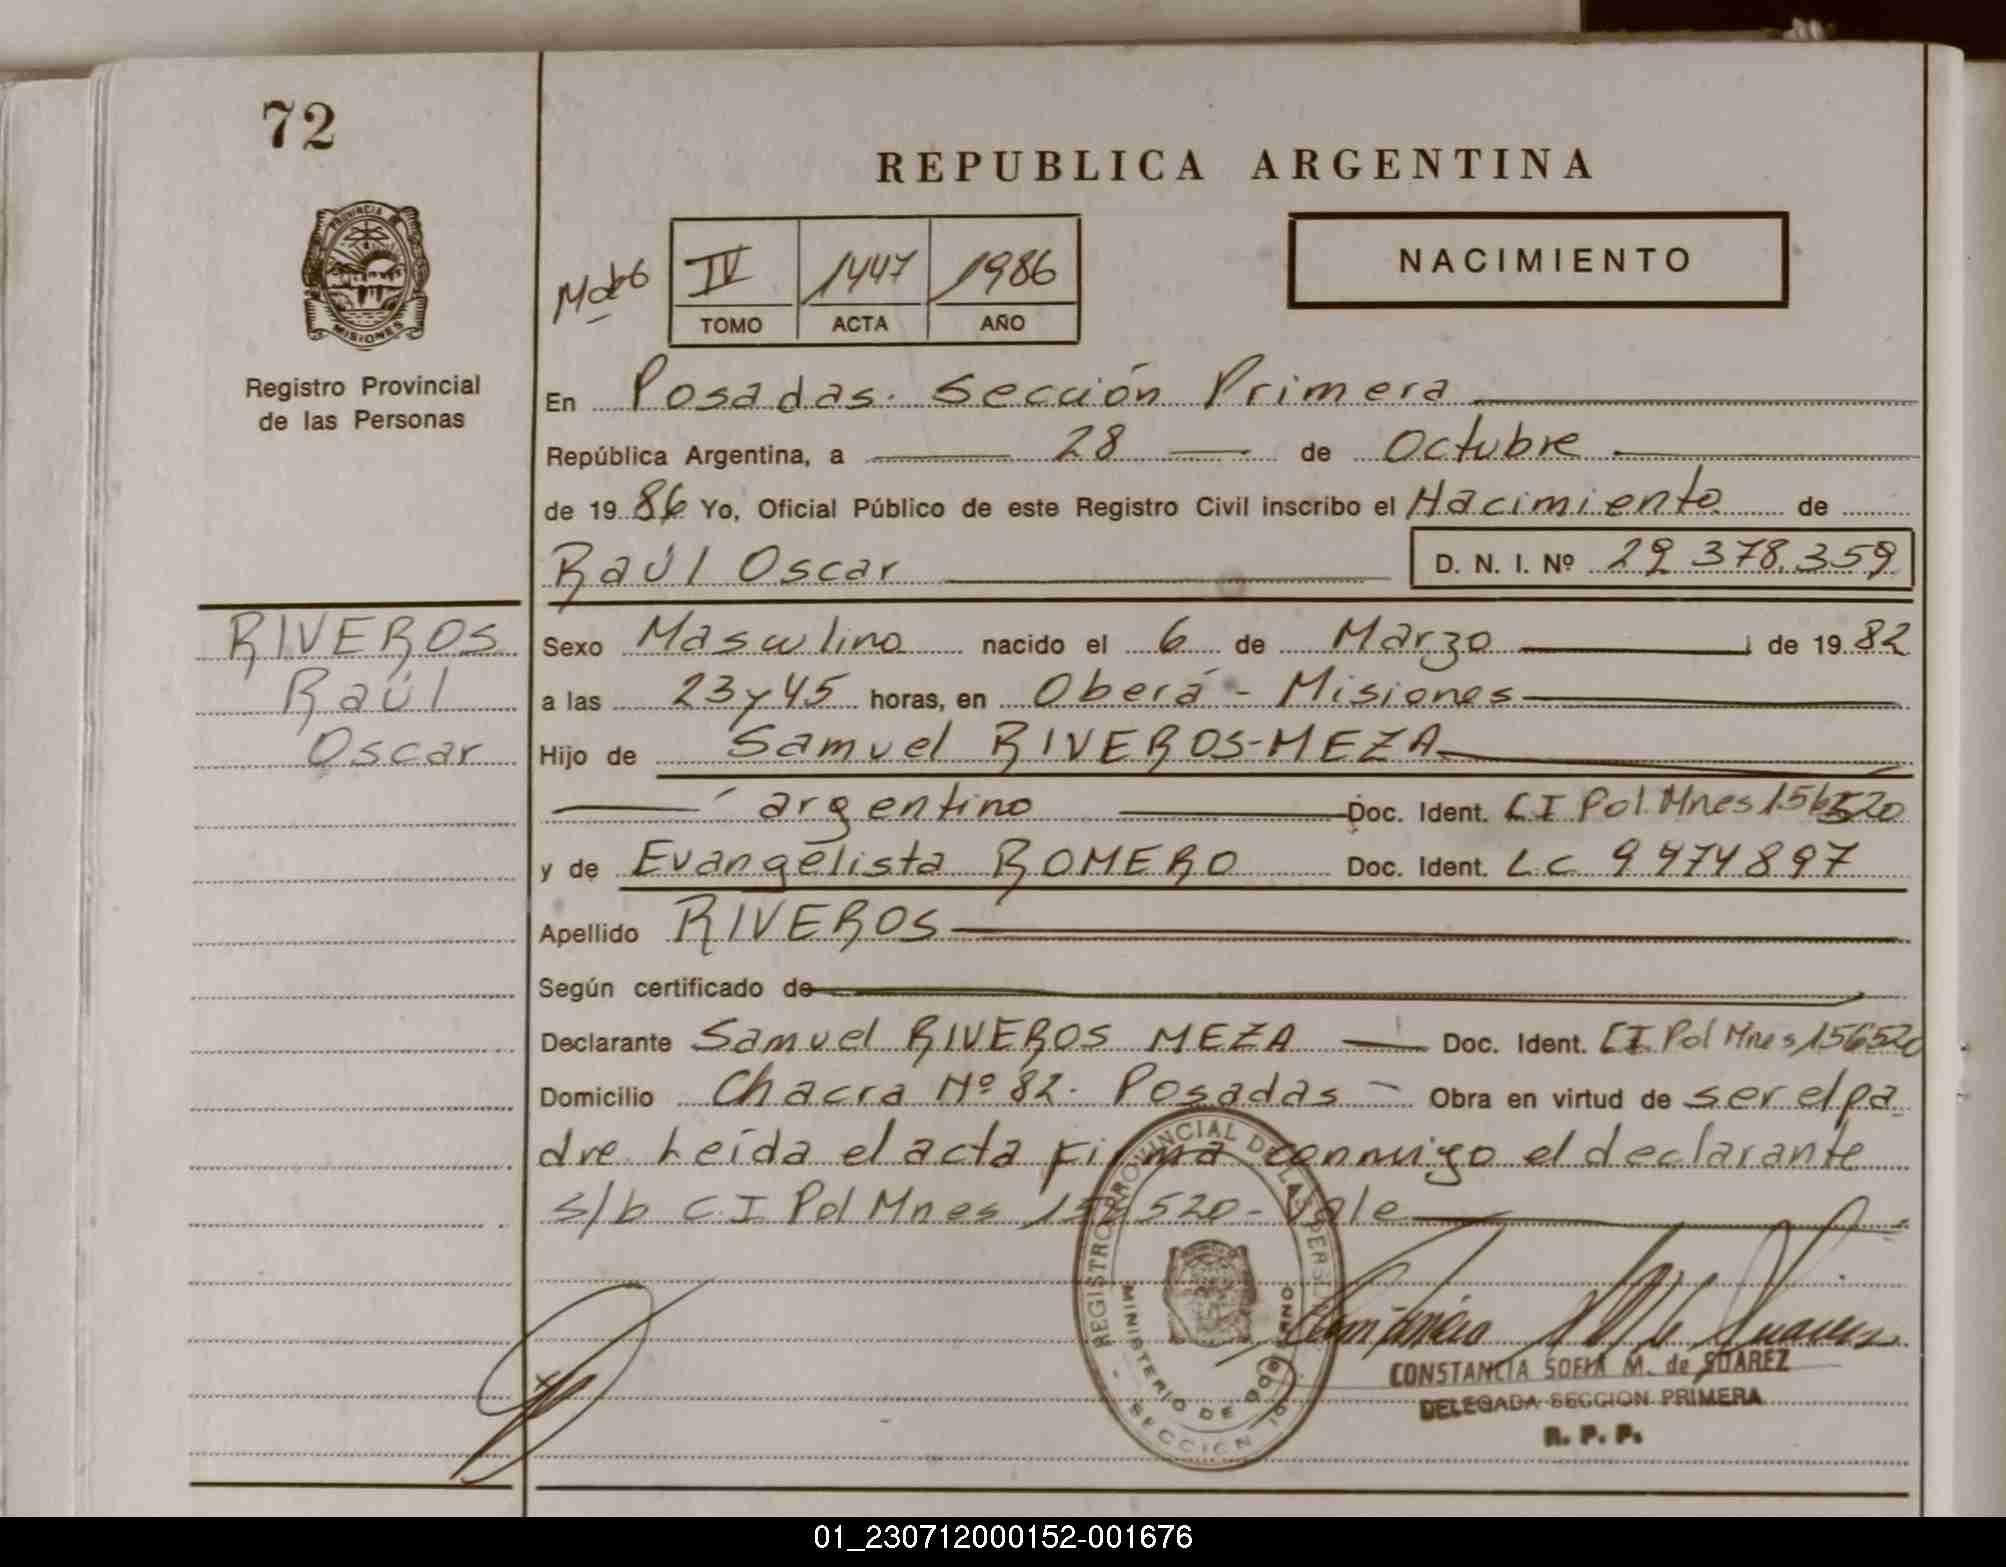 72
REPUBLICA ARGENTINA
PROVINCIA DE MISIONES
IV 1447 1986
TOMO ACTA AÑO
NACIMIENTO
Registro Provincial
de las Personas
En Posadas. Sección Primera
República Argentina, a 28 de Octubre
de 1986 Yo, Oficial Público de este Registro Civil inscribo el Nacimiento de
Raúl Oscar D. N. I. Nº 29 378.359
RIVEROS
Raúl
Oscar
Sexo Masculino nacido el 6 de Marzo de 1982
a las 23 y 45 horas, en Oberá - Misiones
Hijo de Samuel RIVEROS-MEZA
argentino Doc. Ident. CI Pol. Mnes 156520
y de Evangelista ROMERO Doc. Ident. LC 9974897
Apellido RIVEROS
Según certificado de
Declarante Samuel RIVEROS MEZA Doc. Ident. CI. Pol Mnes 156520
Domicilio Chacra Nº 82. Posadas - Obra en virtud de ser el pa
dre. Leída el acta firma conmigo el declarante
s/b C.I Pol Mnes 156520 - Vale
REGISTRO PROVINCIAL DE LAS PERSONAS
MINISTERIO DE GOBIERNO
SECCION
CONSTANCIA SOFIA M. de SUAREZ
DELEGADA SECCION PRIMERA
R. P. P.
01_230712000152-001676